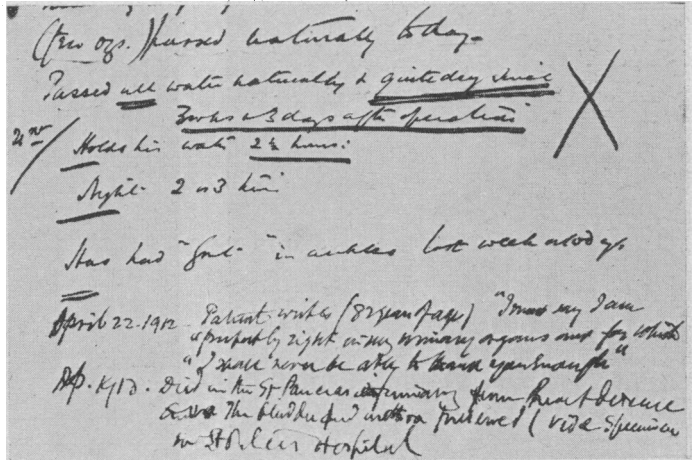 (few ozs.) passed naturally today.
Passed all water naturally & quite dry since
3 wks & 3 days after operation
Holds his water 2½ hours:
Night 2 or 3 hrs
Has had "Gout" in ankles last week or 10 days
April 22. 1912. Patient writes (82 years of age) "I must say I am
"perfectly right in my urinary organs and for which
"I shall never be able to thank you enough"
Died in the St Pancras Infirmary from Heart disease
The bladder and urethra preserved (vide Specimen
in St Peter's Hospital